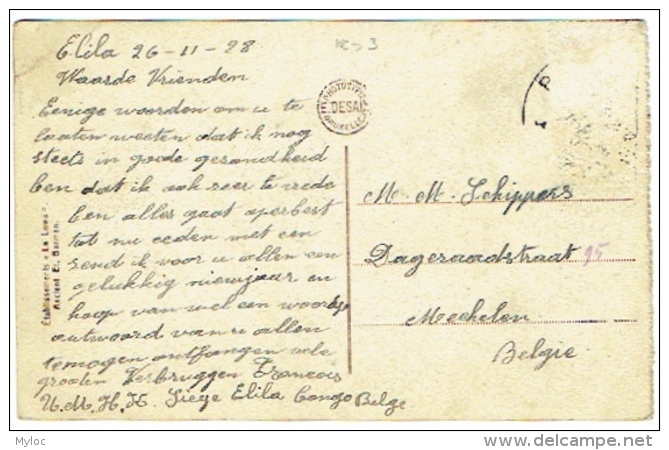 Elila 26-11-28
Waarde Vrienden
Eenige woorden om u te
laaten weeten dat ik nog
steets in goede gesondheid
ben dat ik ook seer te vrede
ben alles gaat operbest
tot nu eeden met een
send ik voor u allen een
gelukkig nieuwjaar en
hoop van wel een woordje
antwoord van u allen
temogen ontfangen vele
groeten Verbruggen Francois
U.M.H.K. Siége Elila Congo Belge
PHOTOTYPIE
DESAIX
BRUXELLES
Etablissements « La Lowa »
Ancient Et.
M. M. Schippers
Dageraadstraat 15
Mechelen
Belgie
Myloc
www.delcampe.net